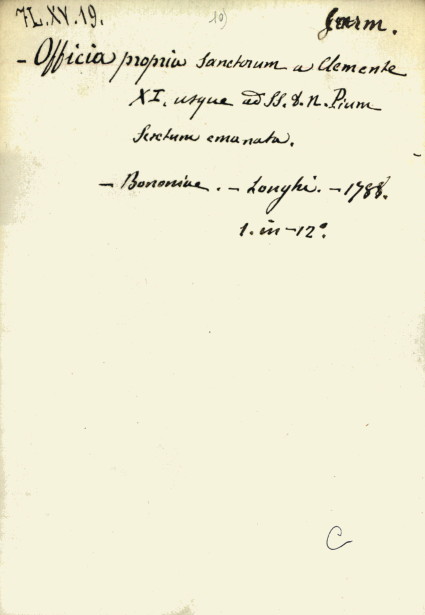 7L.XV.19. 10)
- Officia propria Sanctorum a Clemente
XI. usque ad SS. D. N. Pium
Sextum emanata.
- Bononiae. - Longhi. - 1788.
1. in - 12°.
C